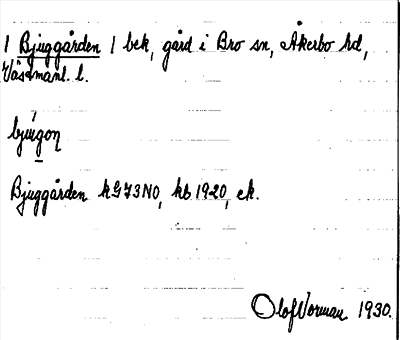 1 Bjuggården / bek, gård i Bro sn, Åkerbo hd,
Västmanl. l.
bju̇gon
Bjuggården hG73NO, kb 1920, ek.
Olof Norman 1930.